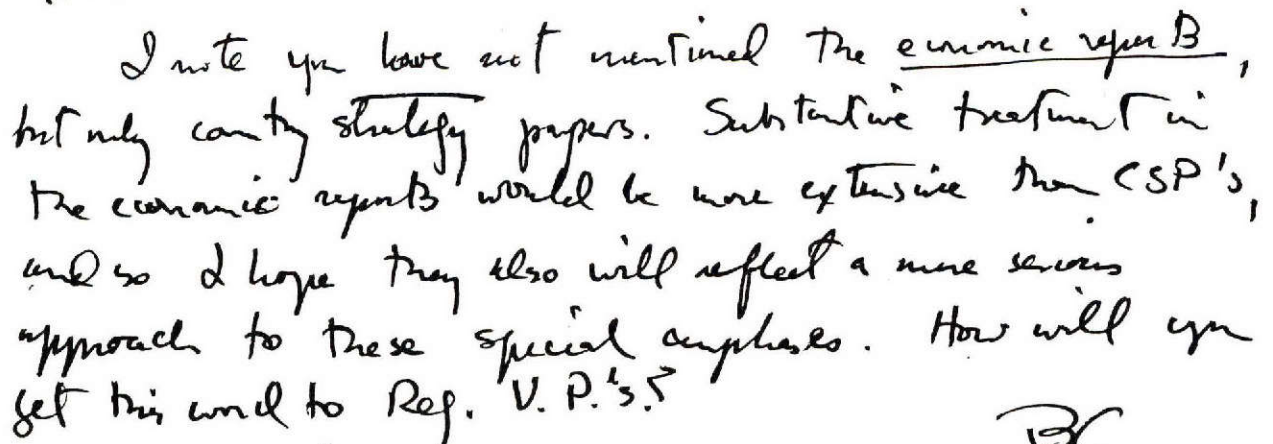 I note you have not mentioned the economic reports,
but only country strategy papers. Substantive treatment in
the economic reports would be more extensive than CSP's,
and so I hope they also will reflect a more serious
approach to these special emphases. How will you
get this word to Reg. V.P.'s?